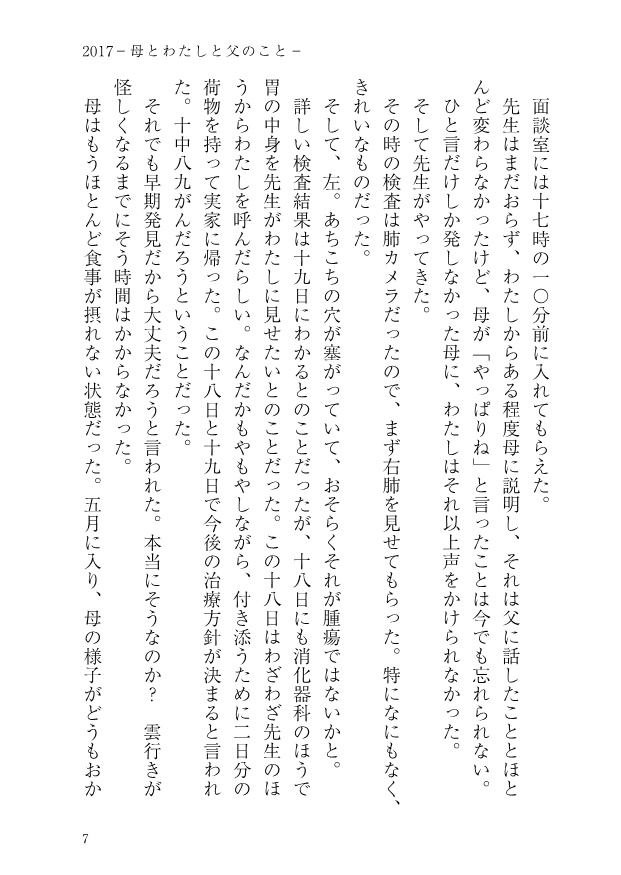 2017－母とわたしと父のこと－
面談室には十七時の一〇分前に入れてもらえた。
先生はまだおらず、わたしからある程度母に説明し、それは父に話したこととほと
んど変わらなかったけど、母が「やっぱりね」と言ったことは今でも忘れられない。
ひと言だけしか発しなかった母に、わたしはそれ以上声をかけられなかった。
そして先生がやってきた。
その時の検査は肺カメラだったので、まず右肺を見せてもらった。特になにもなく、
きれいなものだった。
そして、左。あちこちの穴が塞がっていて、おそらくそれが腫瘍ではないかと。
詳しい検査結果は十九日にわかるとのことだったが、十八日にも消化器科のほうで
胃の中身を先生がわたしに見せたいとのことだった。この十八日はわざわざ先生のほ
うからわたしを呼んだらしい。なんだかもやもやしながら、付き添うために二日分の
荷物を持って実家に帰った。この十八日と十九日で今後の治療方針が決まると言われ
た。十中八九がんだろうということだった。
それでも早期発見だから大丈夫だろうと言われた。本当にそうなのか？　雲行きが
怪しくなるまでにそう時間はかからなかった。
母はもうほとんど食事が摂れない状態だった。五月に入り、母の様子がどうもおか
7